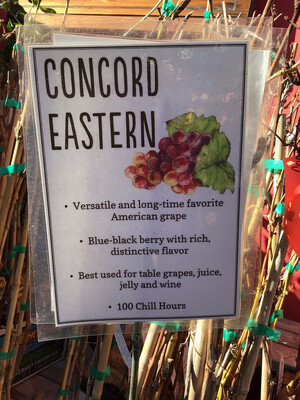 CONCORD
EASTERN
• Versatile and long-time favorite
American grape
• Blue-black berry with rich,
distinctive flavor
• Best used for table grapes, juice,
jelly and wine
• 100 Chill Hours